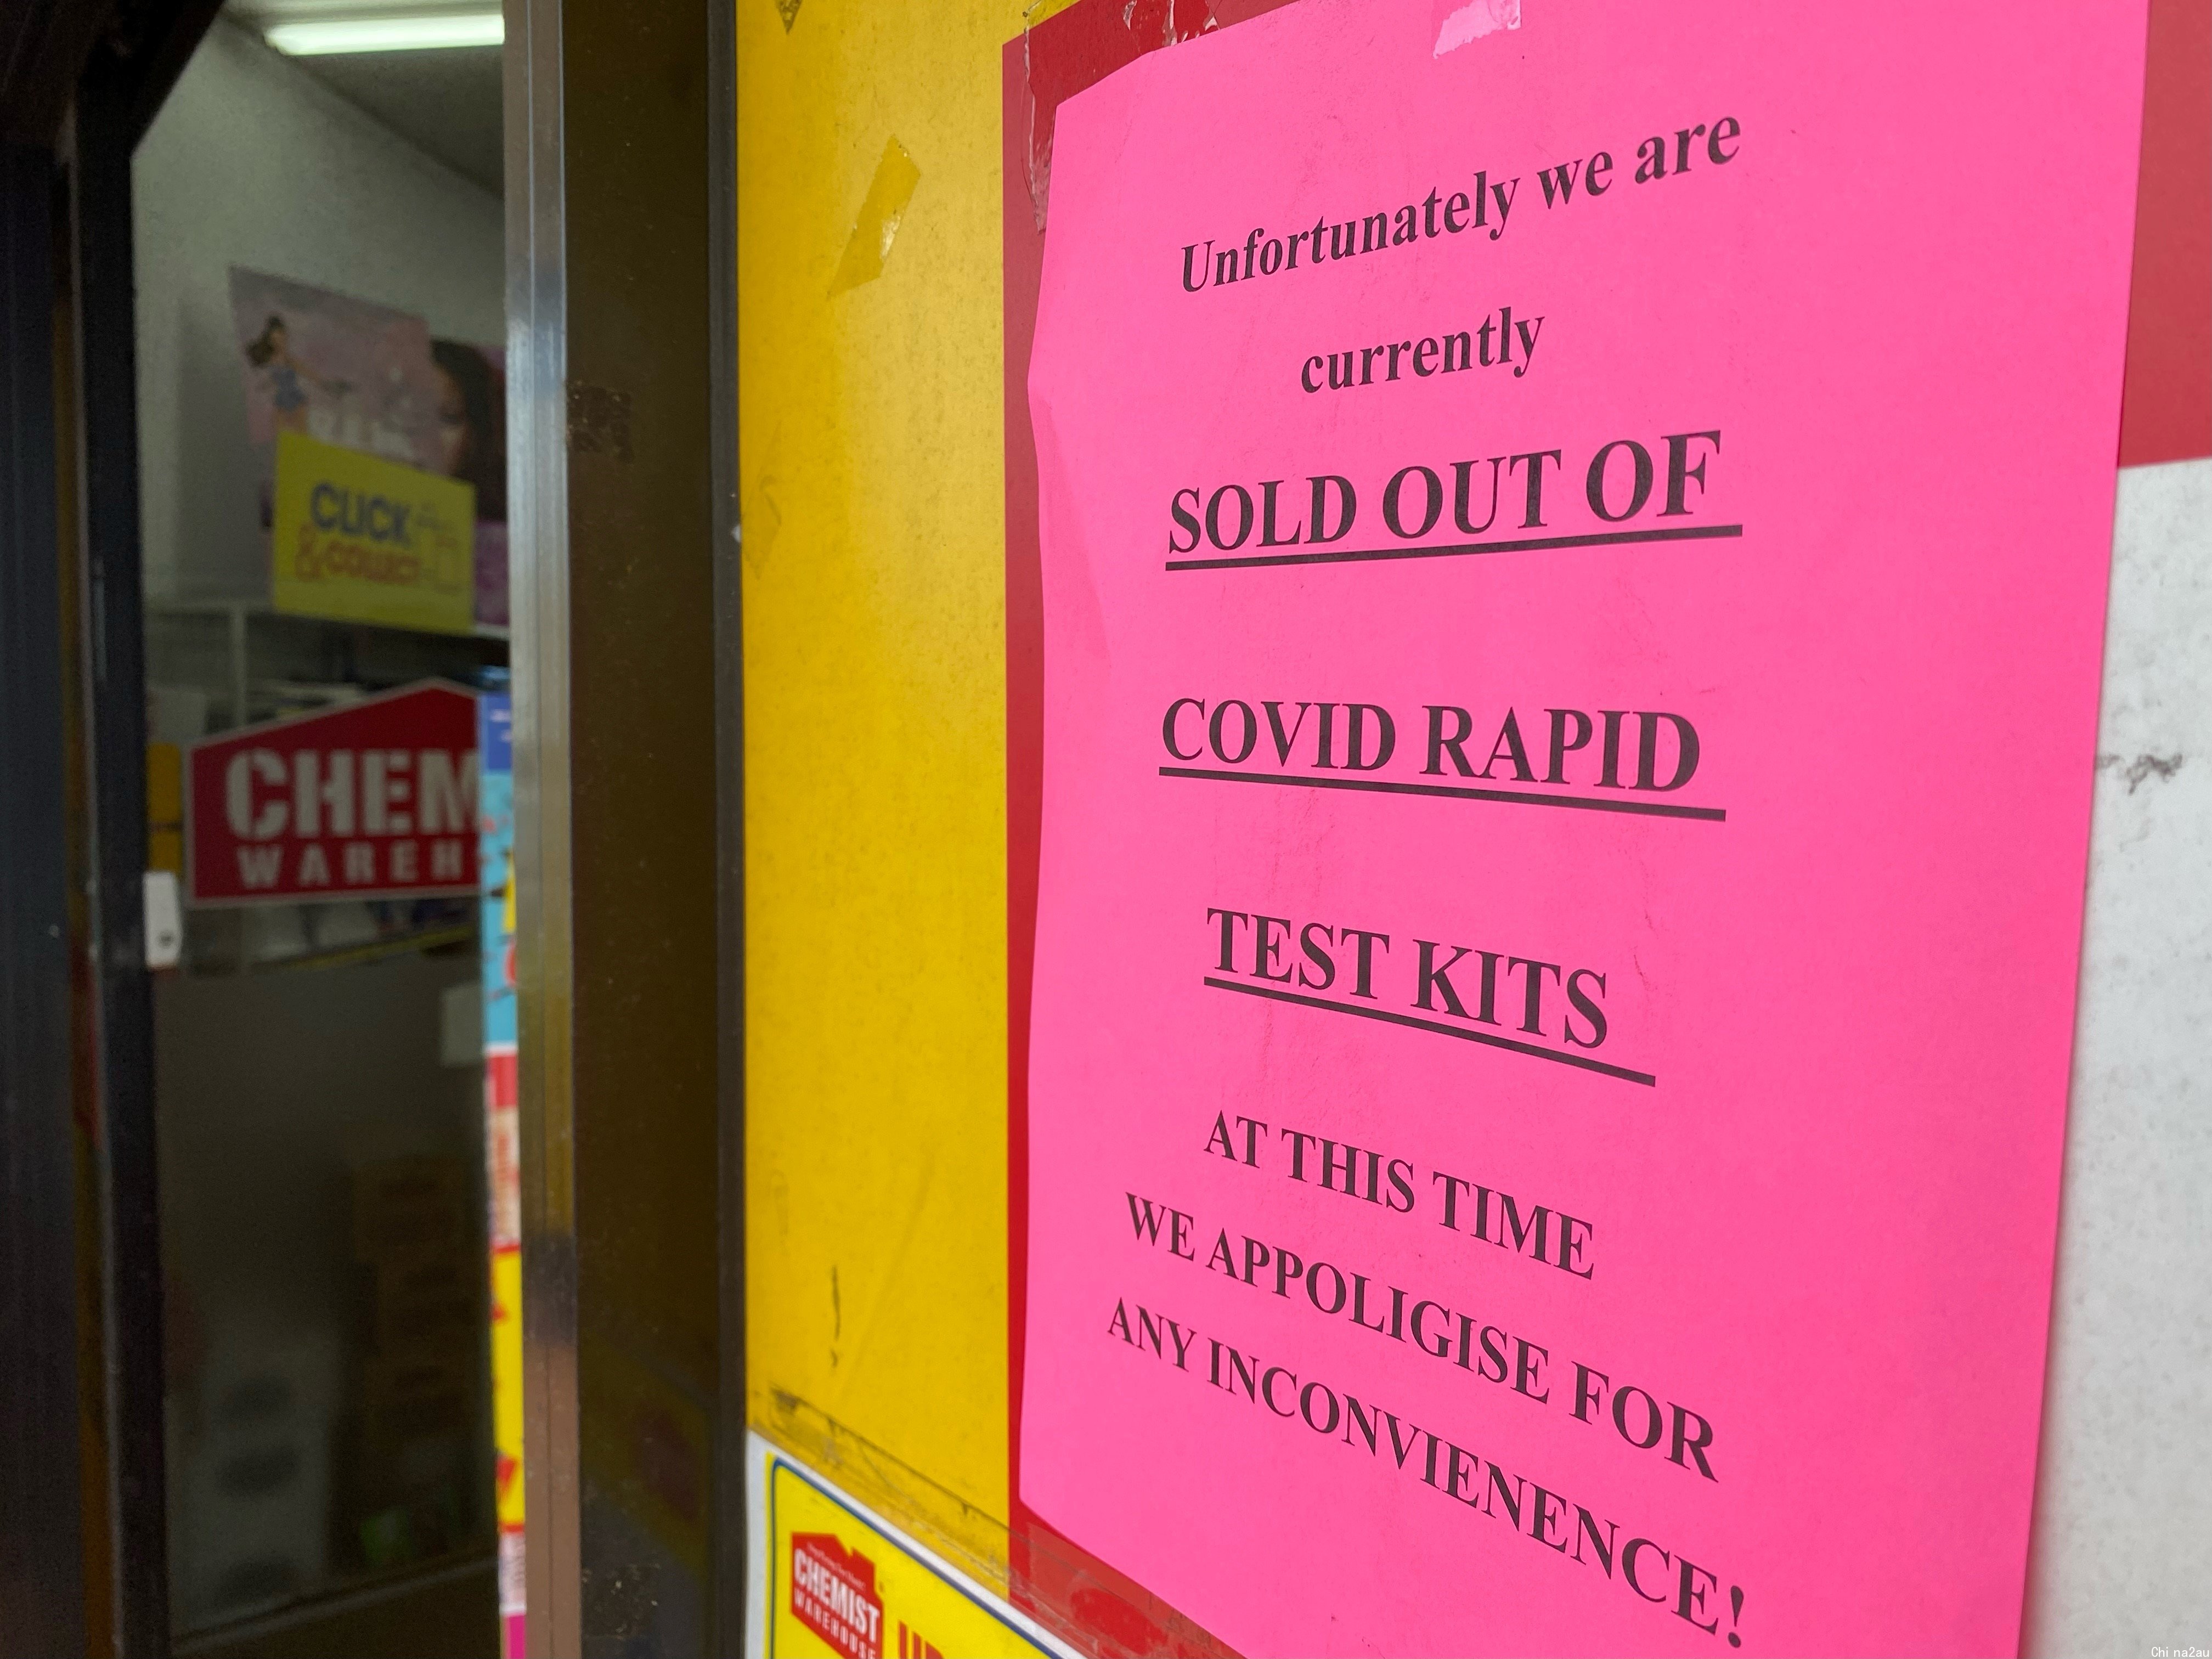 Unfortunately we are
currently
SOLD OUT OF
COVID RAPID
TEST KITS
AT THIS TIME
WE APPOLIGISE FOR
ANY INCONVIENENCE!
CLICK
& COLLECT
CHEM
WAREH
CHEMIST
WAREHOUSE
Chi na2au